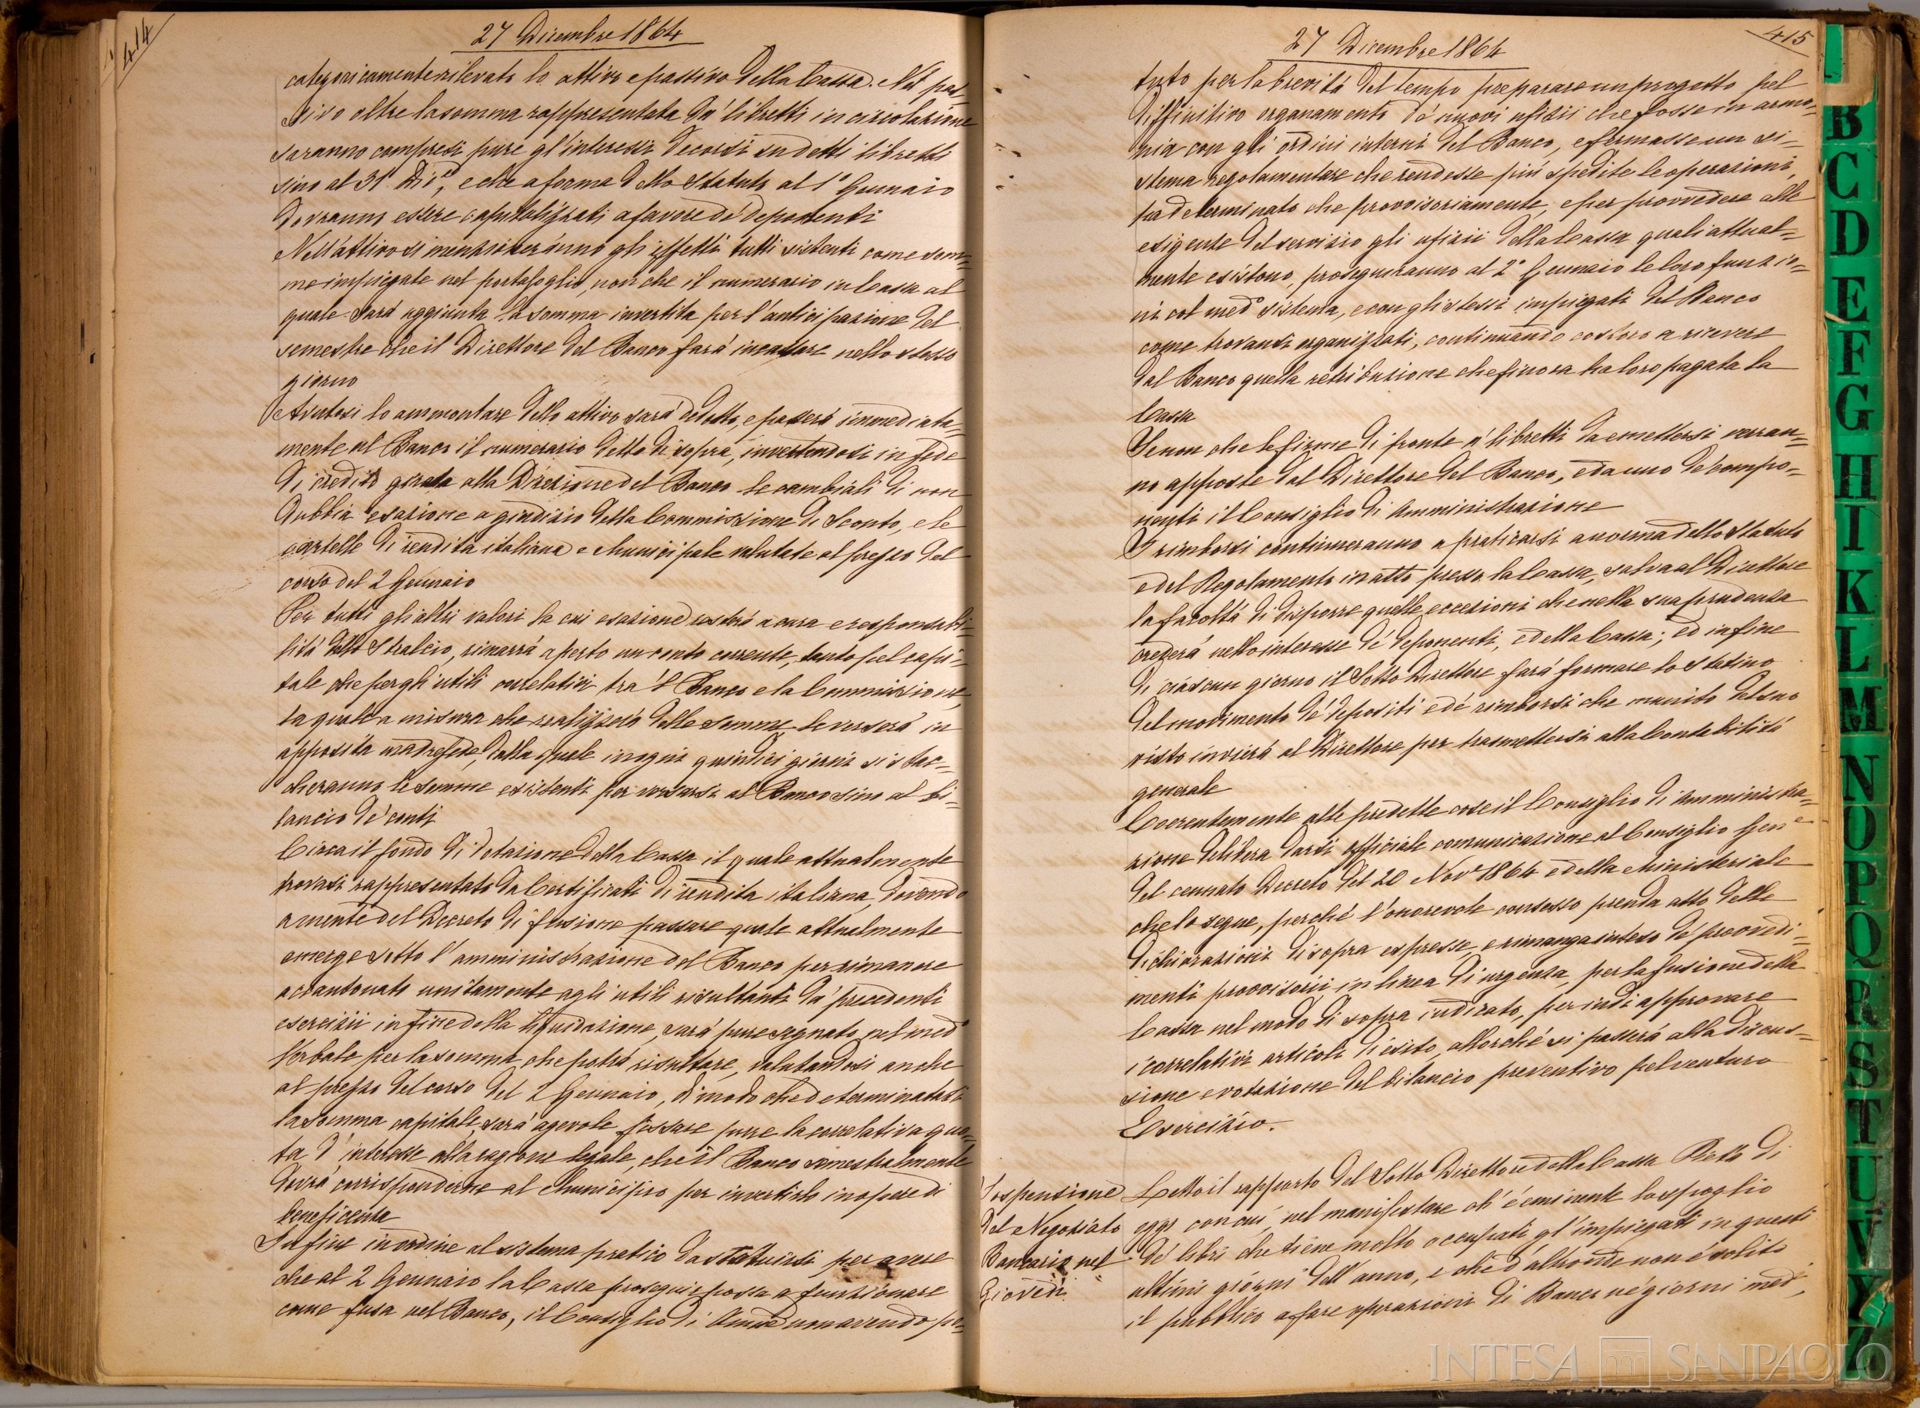 414
27 Dicembre 1864
categoricamente rilevato lo attivo e passivo della Cassa. Nel pas=
sivo oltre la somma rappresentata da' libretti in circolazione
saranno compresi pure gl'interessi decorsi su detti libretti
sino al 31 Dic.e, e che a forma dello Statuto al 1° Gennaio
dovranno essere capitalizzati a favore de' deponenti
Nell'attivo si inseriveranno gli effetti tutti sistenti come som=
me impiegate nel portafoglio, non che il numerario in Cassa al
quale sarà aggiunta la somma invertita per l'anticipazione del
semestre che il Direttore del Banco farà incassare nello stesso
giorno
Avutosi lo ammontare dello attivo sarà dedotto, e passerà immediata=
mente al Banco il numerario detto di sopra, invertendosi in fede
di credito girata alla Direzione del Banco le cambiali di non
dubbia esazione a giudizio della Commissione di Sconto, e le
cartelle di rendita italiana e Municipale valutate al prezzo del
corso del 2 Gennaio
Per tutti gli altri valori la cui esazione resterà a cura e responsabi=
lità dello Stralcio, rimarrà aperto un conto corrente, tanto pel capi=
tale che per gli utili correlativi tra 'l Banco e la Commissione,
la quale a misura che realizzerà delle somme le verserà in
apposita madrefede, dalla quale in ogni quindici giorni si stac=
cheranno le somme esistenti per versarsi al Banco sino al bi=
lancio de' conti
Circa il fondo di dotazione della Cassa il quale attualmente
trovasi rappresentato da Certificati di rendita italiana, dovendo
a mente del Decreto di fusione passare quale attualmente
emerge sotto l'amministrazione del Banco per rimanere
accantonato unitamente agli utili risultanti da' precedenti
esercizii in fine della liquidazione, sarà pure segnato nel med.o
Verbale per la somma che potrà risultare, valutandosi anche
al prezzo del corso del 2 Gennaio, di modo che determinatasi
la somma capitale sarà agevole fissare pure la correlativa quo=
ta d'interesse alla ragione legale, che il Banco semestralmente
dovrà corrispondere al Municipio per invertirlo in opere di
beneficenza
Infine in ordine al sistema pratico da statuirsi per avere
che al 2 Gennaio la Cassa proseguir possa a funzionare
come fusa nel Banco, il Consiglio di Amm.e non avendo po=
415
27 Dicembre 1864
tuto per la brevità del tempo preparare un progetto pel
diffinitivo organamento de' nuovi ufizii che fosse in armo=
nia con gli ordini interni del Banco, e formasse un si=
stema regolamentare che rendesse più spedite le operazioni,
ha determinato che provvisoriamente, e per provvedere alle
esigenze del servizio gli ufizii della Cassa quali attual=
mente esistono, proseguiranno al 2° Gennaio le loro funzio=
ni col med.o sistema, e con gli stessi impiegati del Banco
come trovansi organizzati, continuando costoro a ricevere
dal Banco quella retribuzione che finora ha loro pagata la
Cassa
Senon che le firme di fronte a' libretti da emettersi verran=
no apposte dal Direttore del Banco, e da uno de' compo=
nenti il Consiglio di Amministrazione
I rimborsi continueranno a praticarsi a norma dello Statuto
e del Regolamento in atto presso la Cassa, salva al Direttore
la facoltà di disporre quelle eccezioni che nella sua prudenza
crederà nello interesse de' deponenti, e della Cassa; ed infine
di ciascun giorno il Sotto Direttore farà formare lo Statino
del movimento de' depositi e de' rimborsi che munito del suo
visto invierà al Direttore per trasmettersi alla Contabilità
generale
Coerentemente alle predette cose il Consiglio di Amministra=
zione delibera darsi officiale comunicazione al Consiglio Gen.e
del cennato Decreto del 20 Nov.e 1864 e della Ministeriale
che lo segue, perché l'onorevole consesso prenda atto delle
dichiarazioni di sopra espresse, e rimanga inteso de' provvedi=
menti provvisorii in linea di urgenza, per la fusione della
Cassa nel modo di sopra indicato, per indi approvare
i correlativi articoli d'esito, allorché si passerà alla discus=
sione e votazione del bilancio preventivo pel venturo
Esercizio.
Sospensione
del Negoziato
Bancario nel
Giovedì
Letto il rapporto del Sotto Direttore della Cassa Reta di
oggi con cui, nel manifestare ch'è eminente lo spoglio
de' libri che tiene molto occupati gl'impiegati in questi
ultimi giorni dell'anno, e che d'altronde non è solito
il pubblico a fare operazioni di Banco ne' giorni med.i,
INTESA SANPAOLO
B
C
D
E
F
G
H
I
K
L
M
N
O
P
Q
R
S
T
U
V
Y
Z